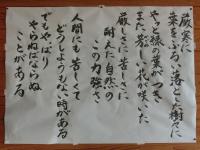 厳寒に
葉をふるい落とした樹々に
やっと緑の葉がつき
また芳しい花が咲いた
厳しさに苦しさに
耐えた自然の
この力強さ
人間にも苦しくて
どうしようもない時がある
でもやっぱり
やらねばならぬ
ことがある